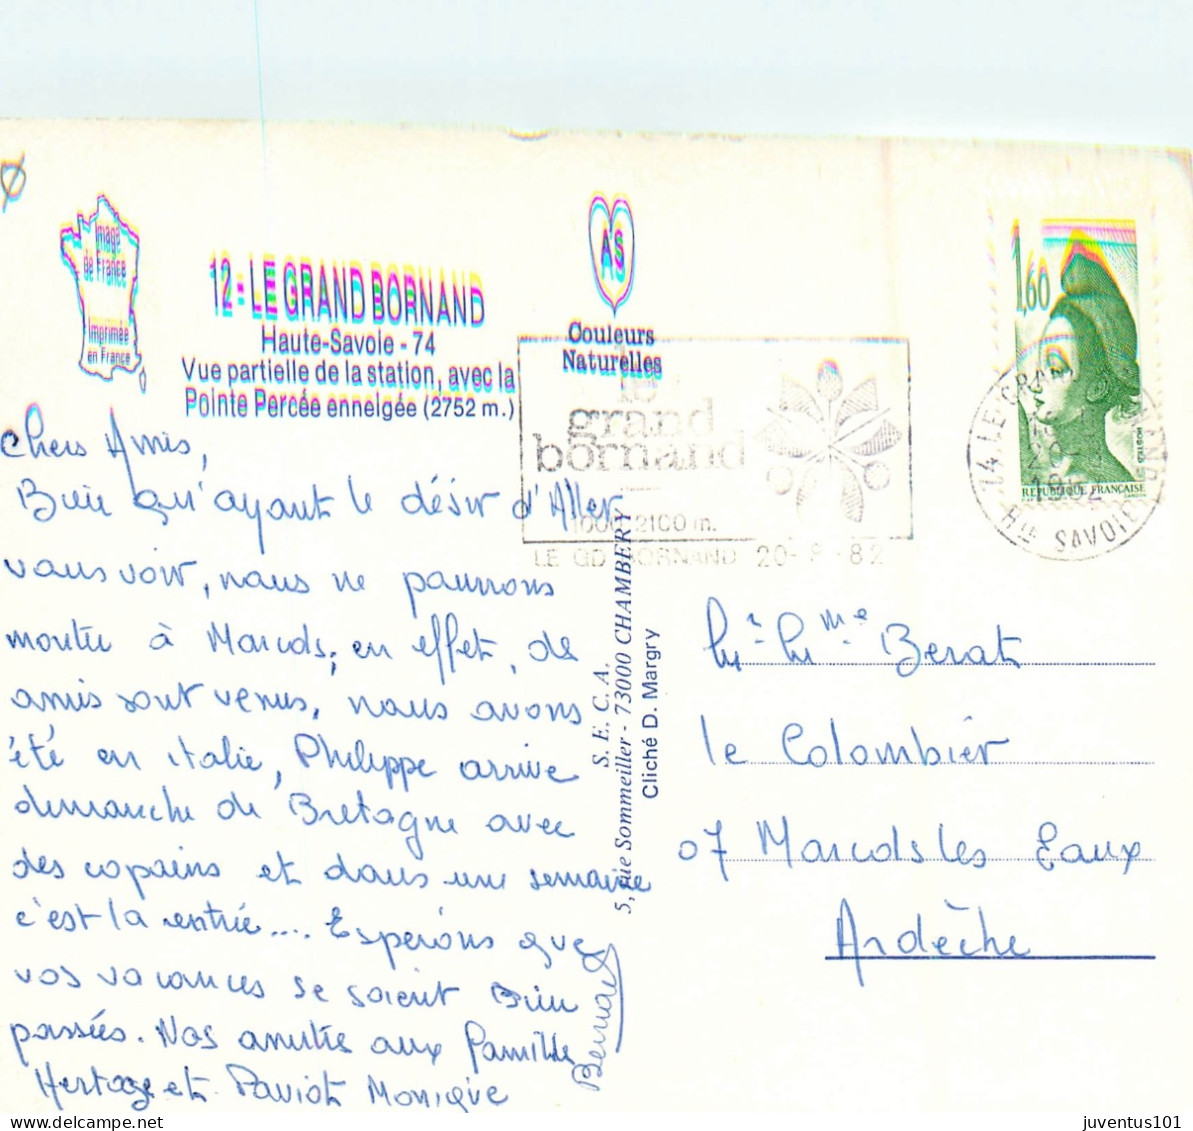 Image
de France
Imprimée
en France
12 - LE GRAND BORNAND
Haute-Savoie - 74
Vue partielle de la station, avec la
Pointe Percée enneigée (2752 m.)
AS
Couleurs
Naturelles
le
grand
bornand
1000 2100 m.
LE GD BORNAND 20-8-82
1,60
REPUBLIQUE FRANÇAISE
74 LE GRAND BORNAND
1982
Hte SAVOIE
Chers Amis,
Bien qu'ayant le désir d'Aller
vous voir, nous ne pourrons
monter à Marcols, en effet, des
amis sont venus, nous avons
été en italie, Philippe arrive
dimanche de Bretagne avec
des copains et dans une semaine
c'est la rentrée.... Espérons que
vos vacances se soient Bien
passées. Nos amitiés aux famille
et Paviot Monique
Bernard
S. E. C. A.
5, rue Sommeiller - 73000 CHAMBERY
Cliché D. Margry
Mr Mme Berat
le Colombier
07 Marcols les Eaux
Ardèche
juventus101